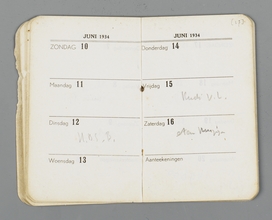 JUNI 1934
ZONDAG 10
Maandag 11
Dinsdag 12
Woensdag 13
JUNI 1934
Donderdag 14
Vrijdag 15
Zaterdag 16
Aanteekeningen